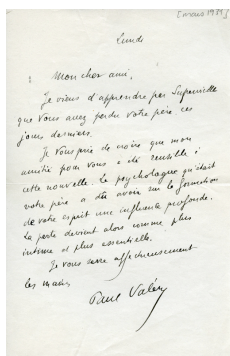 [mars 1937]
Lundi
Mon cher ami,
Je viens d'apprendre par Supervielle
que vous avez perdu votre père ces
jours derniers.
Je vous prie de croire que mon
amitié pour vous a été sensible à
cette nouvelle. Le psychologue qu'était
votre père a dû avoir sur la formation
de votre esprit une influence profonde.
La perte devient alors comme plus
intime et plus essentielle.
Je vous serre affectueusement
les mains
Paul Valéry